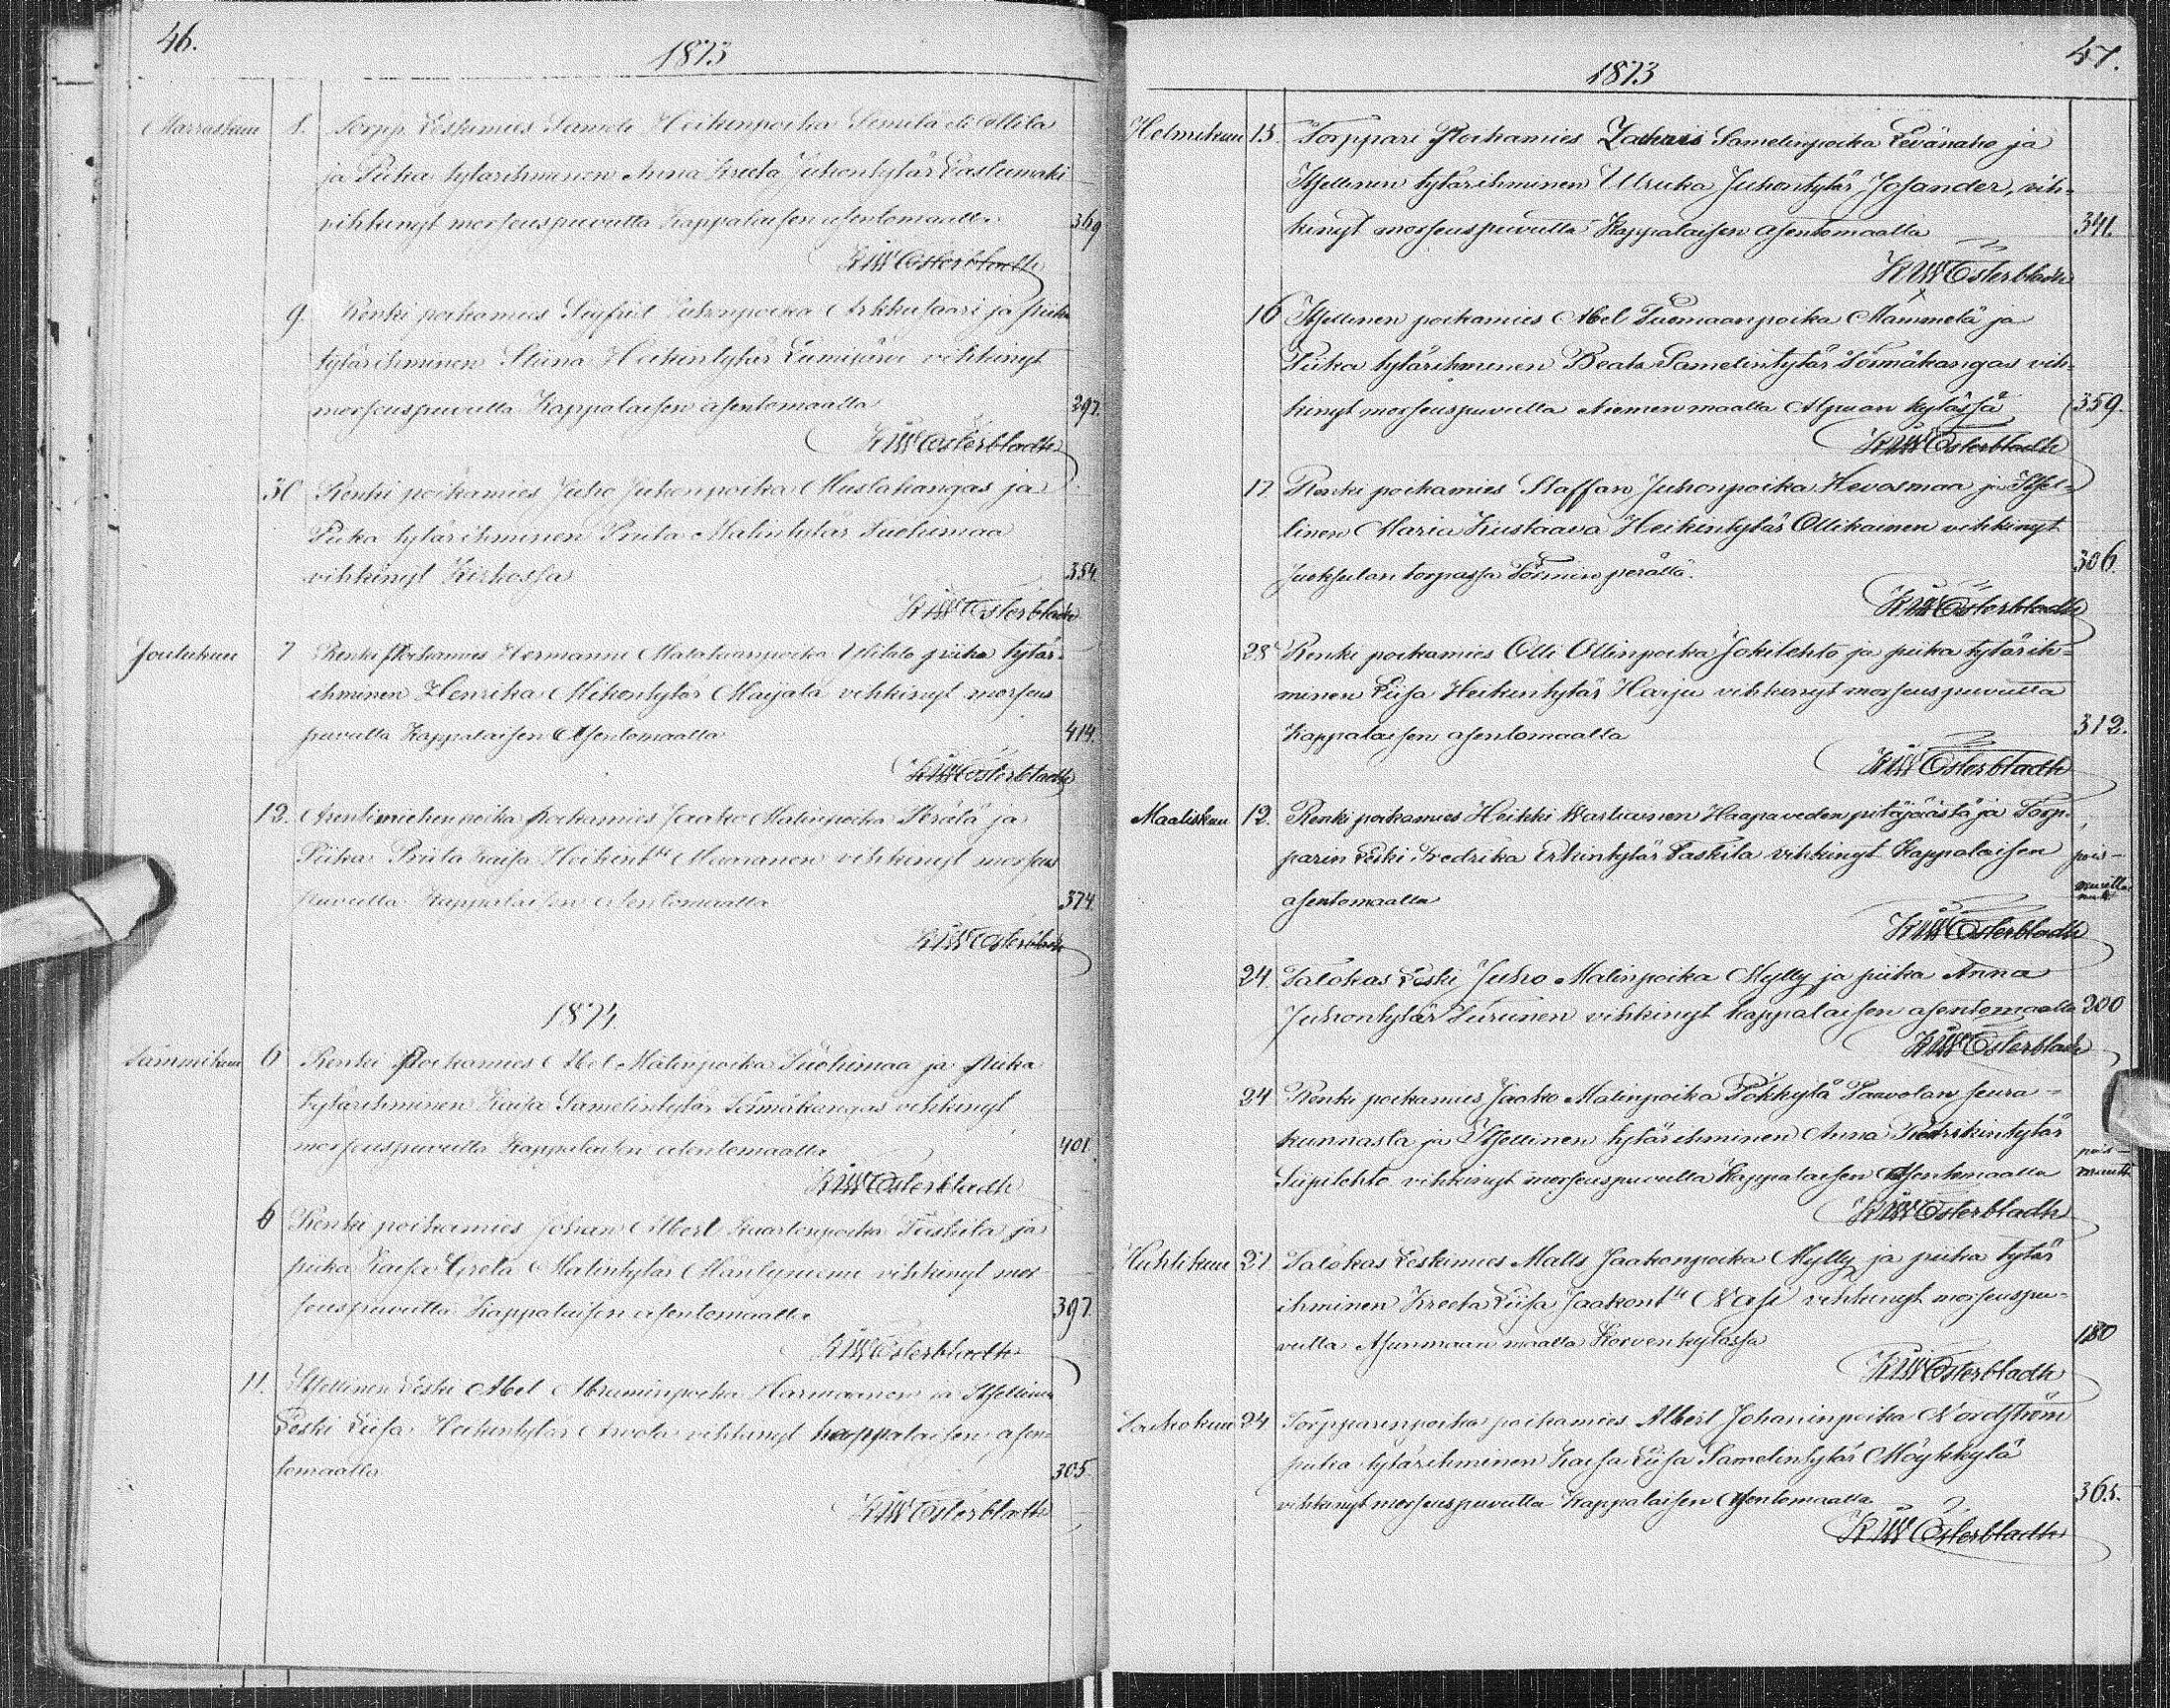 46.
1873
Marraskuu 8. Torpp. Leskimies Sameli Heikinpoika Semilä eli Ollila
ja Piika tytärihminen Anna Kreeta Juhontytär Lastumäki
vihkinyt morseuspuvutta Kappalaisen asentomaalla 369
K W Österbladh
9. Renki poikamies Sigfrid Juhonpoika Arkkusaari ja piika
tytärihminen Stiina Heikintytär Lumijärvi vihkinyt
morseuspuvulla Kappalaisen asentomaalla 297.
K W Österbladh
30 Renki poikamies Juho Juhonpoika Mustakangas ja
Piika tytärihminen Priita Matintytär Suohimaa
vihkinyt Kirkossa 354.
K W Österbladh
Joulukuu 7 Renki Poikamies Hermanni Matakuanpoika piika tytär-
ihminen Henrika Mikontytär Maijala vihkinyt morseus
puvulla Kappalaisen Asentomaalla 414.
K W Österbladh
12. Arentimiehen poika poikamies Jaako Matinpoika Perälä ja
Piika Priita Kaisa Heikint:r Maaranen vihkinyt morseus
puvulla Kappalaisen asentomaalla 374.
K W Österbladh
1874
Tammikuu 6 Renki Poikamies Abel Matinpoika Suohimaa ja Piika
tytärihminen Kaisa Samelintytär Törmäkangas vihkinyt
morseuspuvulla Kappalaisen asentomaalla 401.
K W Österbladh
6 Renki poikamies Johan Albert Kaarlonpoika Toiskila ja
piika Kaisa Greta Matintytär Mäntyniemi vihkinyt mor-
seuspuvulla Kappalaisen asentomaalla 397.
K W Österbladh
11. Itsellinen Leski Abel Abraminpoika Harmaanen ja Itsellinen
Leski Liisa Heikintytär Arvola vihkinyt kappalaisen asen-
tomaalla 305.
K W Österbladh
47.
1873
Helmikuu 15. Torppari Poikamies Zachris Samelinpoika Levänaho ja
Itsellinen tytärihminen Ulruka Juhontytär Josander, vih-
kinyt morseuspuvulla Kappalaisen asentomaalla 341.
K W Österbladh
16 Itsellinen poikamies Abel Tuomaanpoika Mämmelä ja
Piika tytärihminen Beata Samelintytär Törmäkangas vih-
kinyt morseuspuvulla Niemen maalla Alpuan kylässä 359.
K W Österbladh
17 Renki poikamies Staffan Juhonpoika Hevosmaa ja Itsel-
linen Maria Kustaava Heikintytär Ollikainen vihkinyt
Juoksulan torpassa Törmin perällä. 306
K W Österbladh
28 Renki poikamies Olli Ollinpoika Jokilehto ja piika tytärih-
minen Liisa Heikintytär Harju vihkinyt morseuspuvulla
Kappalaisen asentomaalla 312.
K W Österbladh
Maaliskuu 12. Renki poikamies Heikki Wartiainen Haapaveden pitäjäästä ja Torp-
parin Leski Fredrika Erkintytär Laskila vihkinyt Kappalaisen pois-
asentomaalla muutta nut
K W Österbladh
24. Talokas Leski Juho Matinpoika Mylly ja piika Anna
Juhontytär Turunen vihkinyt kappalaisen asentomaalla 200
K W Österbladh
24 Renki poikamies Jaako Matinpoika Pökkylä Paavolan seura-
kunnasta ja Itsellinen tytärihminen Anna Fredrikintytär pois-
Siipilehto vihkinyt morseuspuvulla Kappalaisen Asentomaalla muutt.
K W Österbladh
Huhtikuu 27 Talokas Leskimies Matts Jaakonpoika Mylly ja piika tytär
ihminen Kreeta Liisa Jaakont:r Wasi vihkinyt morseuspu-
vulla Asunmaan maalla Korvenkylässä 180
K W Österbladh
Toukokuu 24. Torpparinpoika poikamies Albert Johaninpoika Nordström
piika tytärihminen Kaisa Liisa Samelintytär Möykkylä
vihkinyt morseuspuvulla Kappalaisen Asentomaalla 365.
K W Österbladh